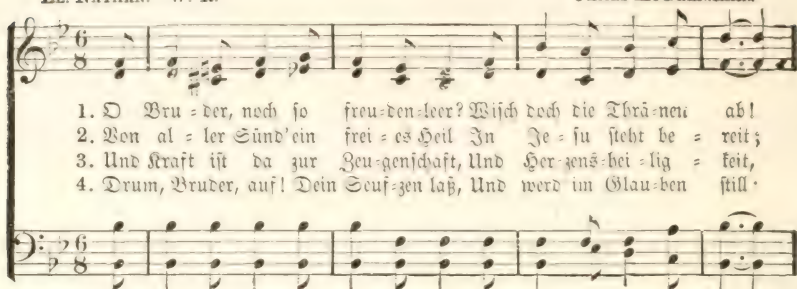 1. O Bru = der, noch so freu=den=leer? Wisch doch die Thrä=nen ab!
2. Von al = ler Sünd' ein frei = es Heil In Je = su steht be = reit;
3. Und Kraft ist da zur Zeu=genschaft, Und Her=zens=hei=lig = keit,
4. Drum, Bruder, auf! Dein Seuf=zen laß, Und werd im Glau=ben still.